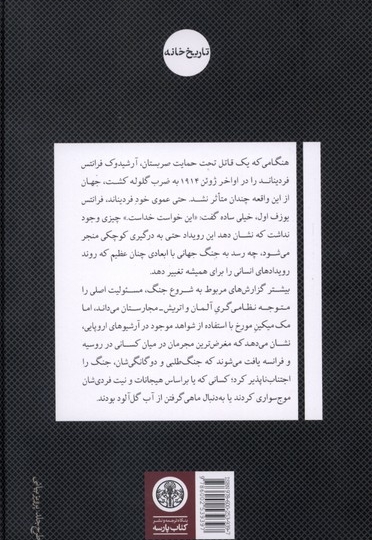 تاریخ‌خانه
هنگامی‌که یک قاتل تحت حمایت صربستان، آرشیدوک فرانتس
فردیناند را در اواخر ژوئن ۱۹۱۴ به ضرب گلوله کشت، جهان
از این واقعه چندان متأثر نشد. حتی عموی خودِ فردیناند، فرانتس
یوزف اول، خیلی ساده گفت: «این خواست خداست.» چیزی وجود
نداشت که نشان دهد این رویداد حتی به درگیری کوچکی منجر
می‌شود، چه رسد به جنگ جهانی با ابعادی چنان عظیم که روند
رویدادهای انسانی را برای همیشه تغییر دهد.
بیشتر گزارش‌های مربوط به شروع جنگ، مسئولیت اصلی را
متوجه نظامی‌گریِ آلمان و اتریش ـ مجارستان می‌داند، اما
مک‌میکینِ مورخ با استفاده از شواهد موجود در آرشیوهای اروپایی،
نشان می‌دهد که مغرض‌ترین مجرمان در میان کسانی در روسیه و
فرانسه یافت می‌شوند که جنگ‌طلبی و دوگانگی‌شان، جنگ را
اجتناب‌ناپذیر کرد؛ کسانی که یا براساس هیجانات و نیت فردی‌شان
موج‌سواری کردند یا به‌دنبال ماهی‌گرفتن از آب گل‌آلود بودند.
کتاب پارسه